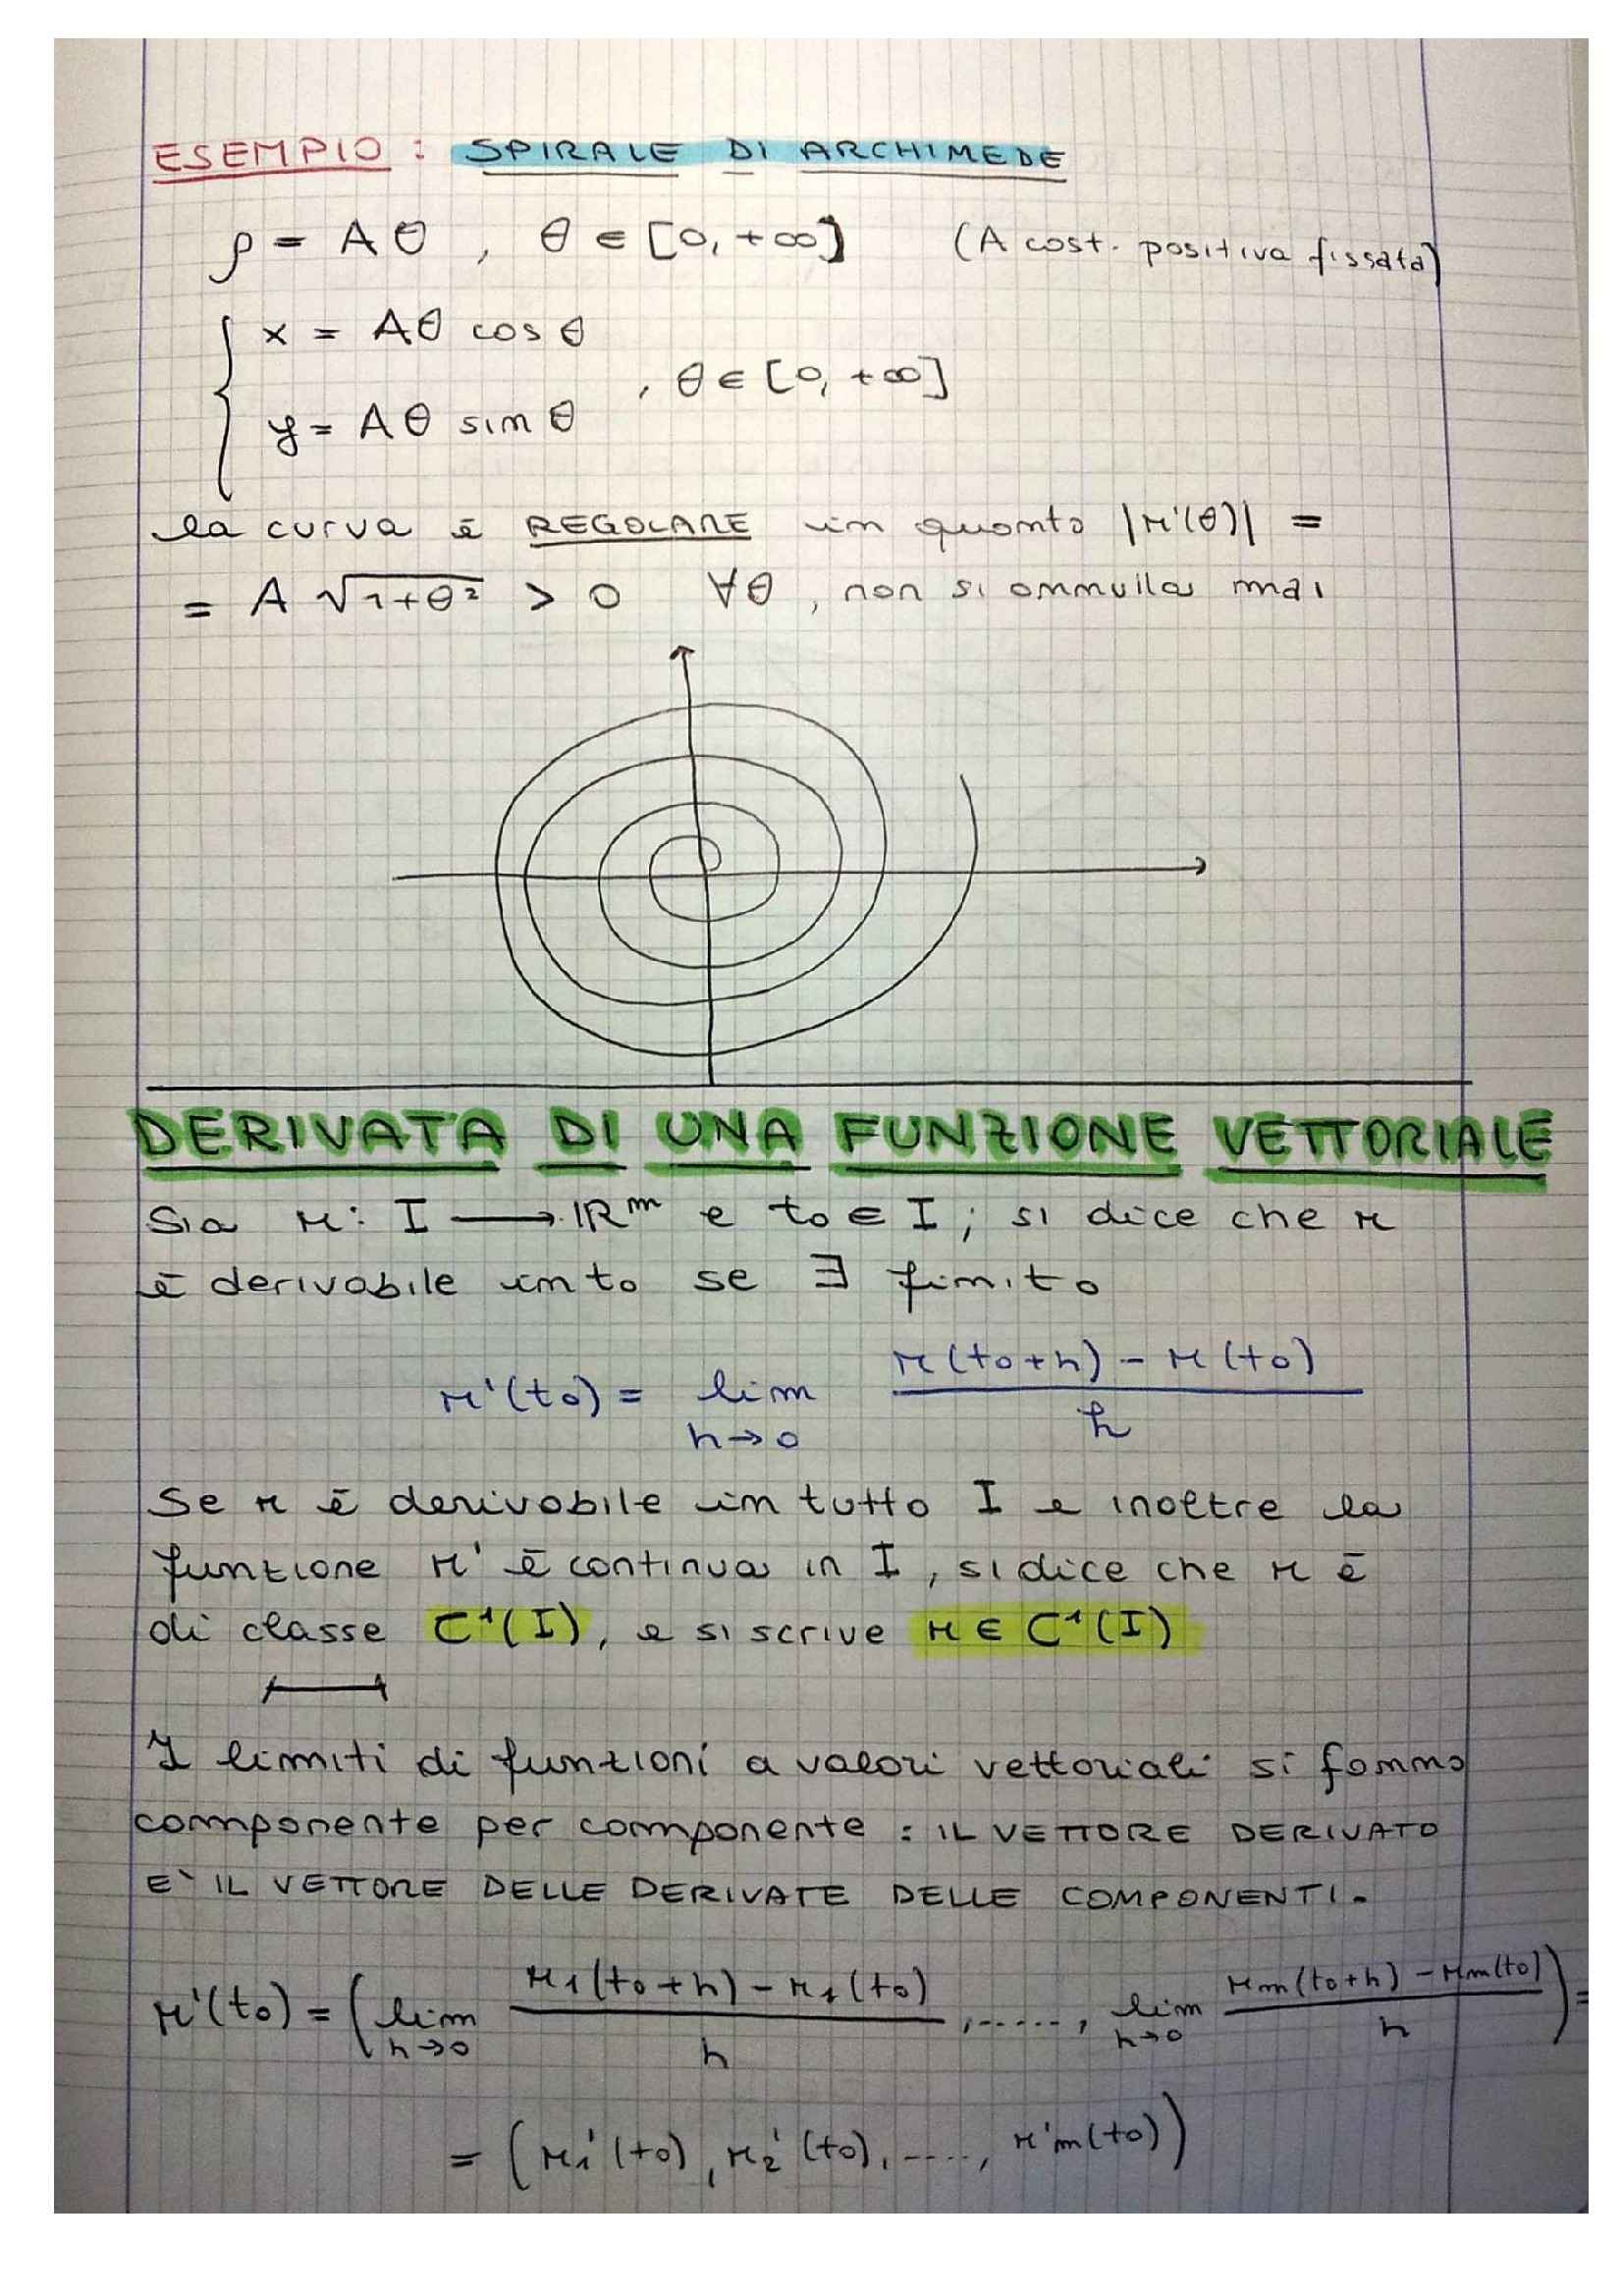 ESEMPIO : SPIRALE DI ARCHIMEDE
ρ = Aθ , θ ∈ [0, +∞] (A cost. positiva fissata)
{ x = Aθ cos θ
, θ ∈ [0, +∞]
y = Aθ sin θ
la curva è REGOLARE in quanto |r'(θ)| =
= A √1+θ² > 0 ∀θ , non si annulla mai
DERIVATA DI UNA FUNZIONE VETTORIALE
Sia r: I ⟶ ℝᵐ e t₀ ∈ I ; si dice che r
è derivabile in t₀ se ∃ finito
r'(t₀) = lim h→0 r(t₀+h) - r(t₀) / h
Se r è derivabile in tutto I e inoltre la
funzione r' è continua in I , si dice che r è
di classe C¹(I), e si scrive r ∈ C¹(I)
I limiti di funzioni a valori vettoriali si fanno
componente per componente : IL VETTORE DERIVATO
E' IL VETTORE DELLE DERIVATE DELLE COMPONENTI.
r'(t₀) = ( lim h→0 r₁(t₀+h) - r₁(t₀) / h ,......, lim h→0 rm(t₀+h) - rm(t₀) / h ) =
= ( r₁'(t₀), r₂'(t₀), ...., r'm(t₀) )